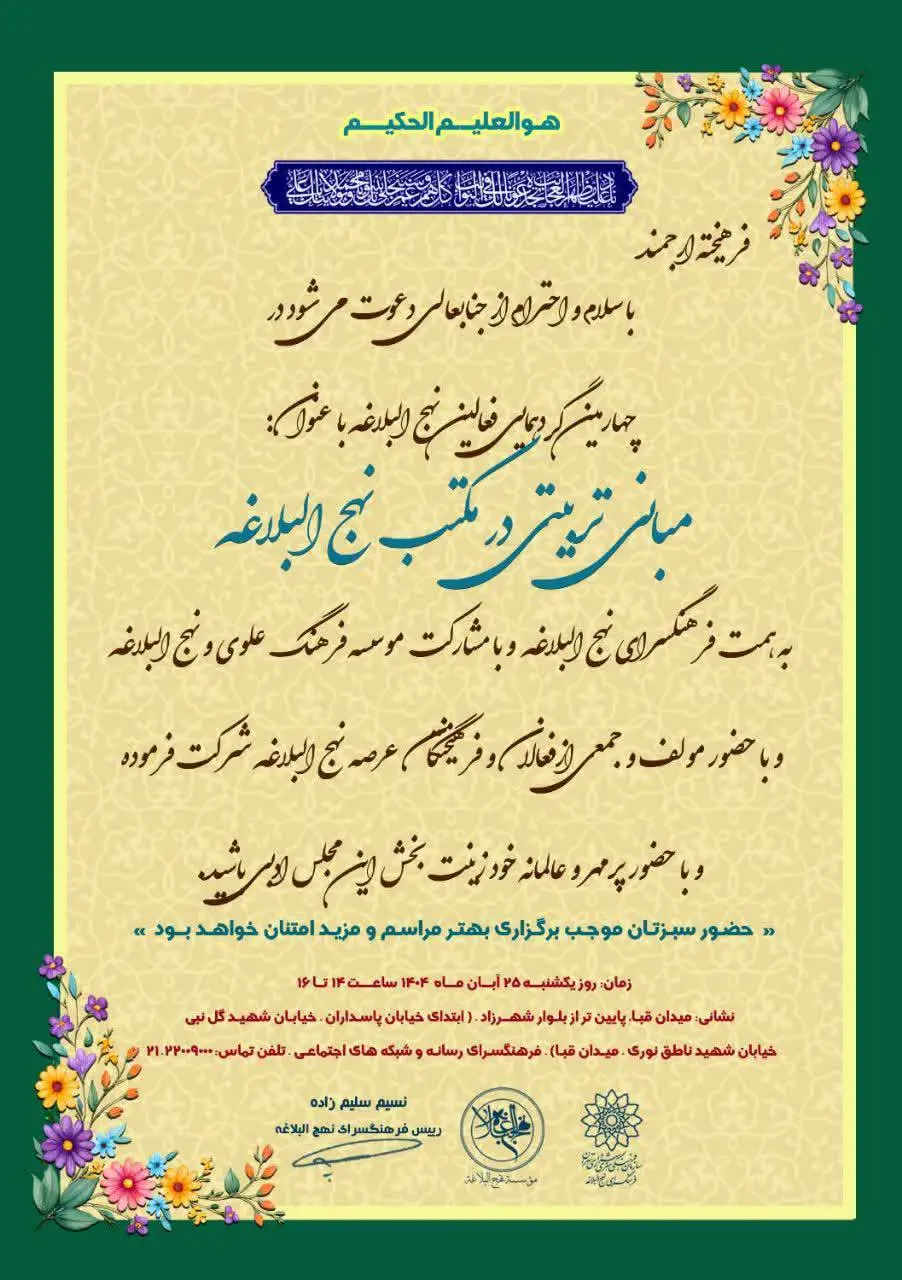 هوالعلیم الحکیم
فرهیخته ارجمند
با سلام و احترام از جنابعالی دعوت می شود در
چهارمین گردهمایی فعالین نهج البلاغه با عنوان:
مبانی تربیتی در مکتب نهج البلاغه
به همت فرهنگسرای نهج البلاغه و با مشارکت موسسه فرهنگ علوی و نهج البلاغه
و با حضور مولف و جمعی از فعالان و فرهیختگان عرصه نهج البلاغه شرکت فرموده
و با حضور پرمهر و عالمانه خود زینت بخش این مجلس ادبی باشید.
« حضور سبزتان موجب برگزاری بهتر مراسم و مزید امتنان خواهد بود »
زمان: روز یکشنبه ۲۵ آبان ماه ۱۴۰۴ ساعت ۱۴ تا ۱۶
نشانی: میدان قبا، پایین تر از بلوار شهرزاد . ( ابتدای خیابان پاسداران . خیابان شهید گل نبی
خیابان شهید ناطق نوری . میدان قبا) . فرهنگسرای رسانه و شبکه های اجتماعی . تلفن تماس: ۲۲۰۰۹۰۰۰ . ۲۱
نسیم سلیم زاده
رییس فرهنگسرای نهج البلاغه
نهج البلاغه
مؤسسة نهج البلاغة
فرهنگسرای نهج البلاغه